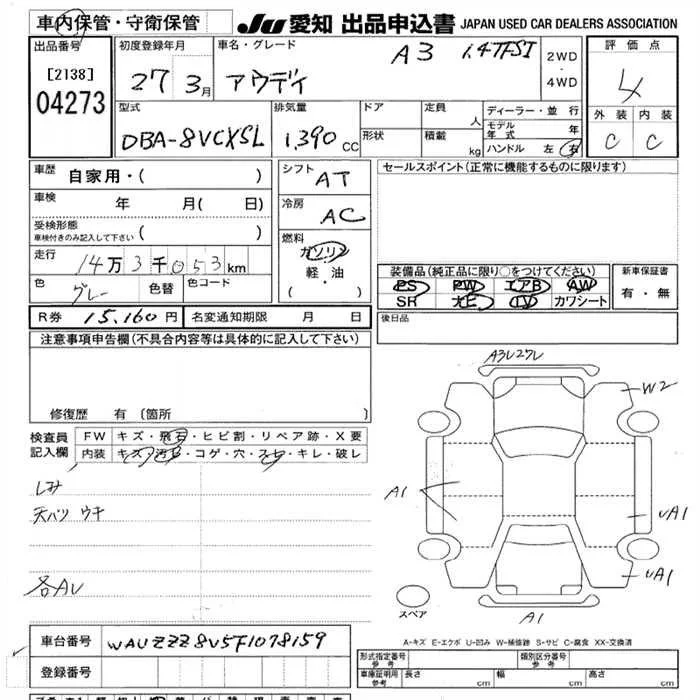 車内保管・守衛保管
JU 愛知 出品申込書 JAPAN USED CAR DEALERS ASSOCIATION
出品番号
[2138]
04273
初度登録年月
27 3月
車名・グレード
アウディ
A3 1.4TFSI
2WD
・
4WD
評価点
4
外装 内装
C C
型式
DBA-8VCXSL
排気量
1.390 cc
ドア
形状
定員 人
積載 kg
ディーラー・並行
モデル年式 年
ハンドル 左 右
車歴 自家用・( )
車検 年 月( 日)
受検形態
車検付きのみ記入して下さい ( )
走行
14万3千053km
色 グレー 色替 色コード
シフト
AT
冷房
AC
燃料
ガソリン
・
軽・油
( ・ )
セールスポイント(正常に機能するものに限ります)
装備品(純正品に限り○をつけてください)
PS PW エアB AW
SR ナビ TV カワシート
新車保証書
有・無
R券 15.160円 名変通知期限 月 日
後日品
注意事項申告欄(不具合内容等は具体的に記入して下さい)
修復歴 有 〔箇所
検査員
記入欄
FW キズ・飛石・ヒビ割・リペア跡・X要
内装 キズ・汚レ・コゲ・穴・スレ・キレ・破レ
シミ
天バリ ウキ
各AU
A3U27L
W2
A1
UA1
UA1
A1
スペア
A-キズ E-エクボ U-凹み W-補修跡 S-サビ C-腐食 XX-交換済
車台番号 WAUZZZ8V5F1078159
登録番号
形式指定番号
参考
類別区分番号
参考
車庫証明用
参考
長さ cm 幅 cm 高さ cm